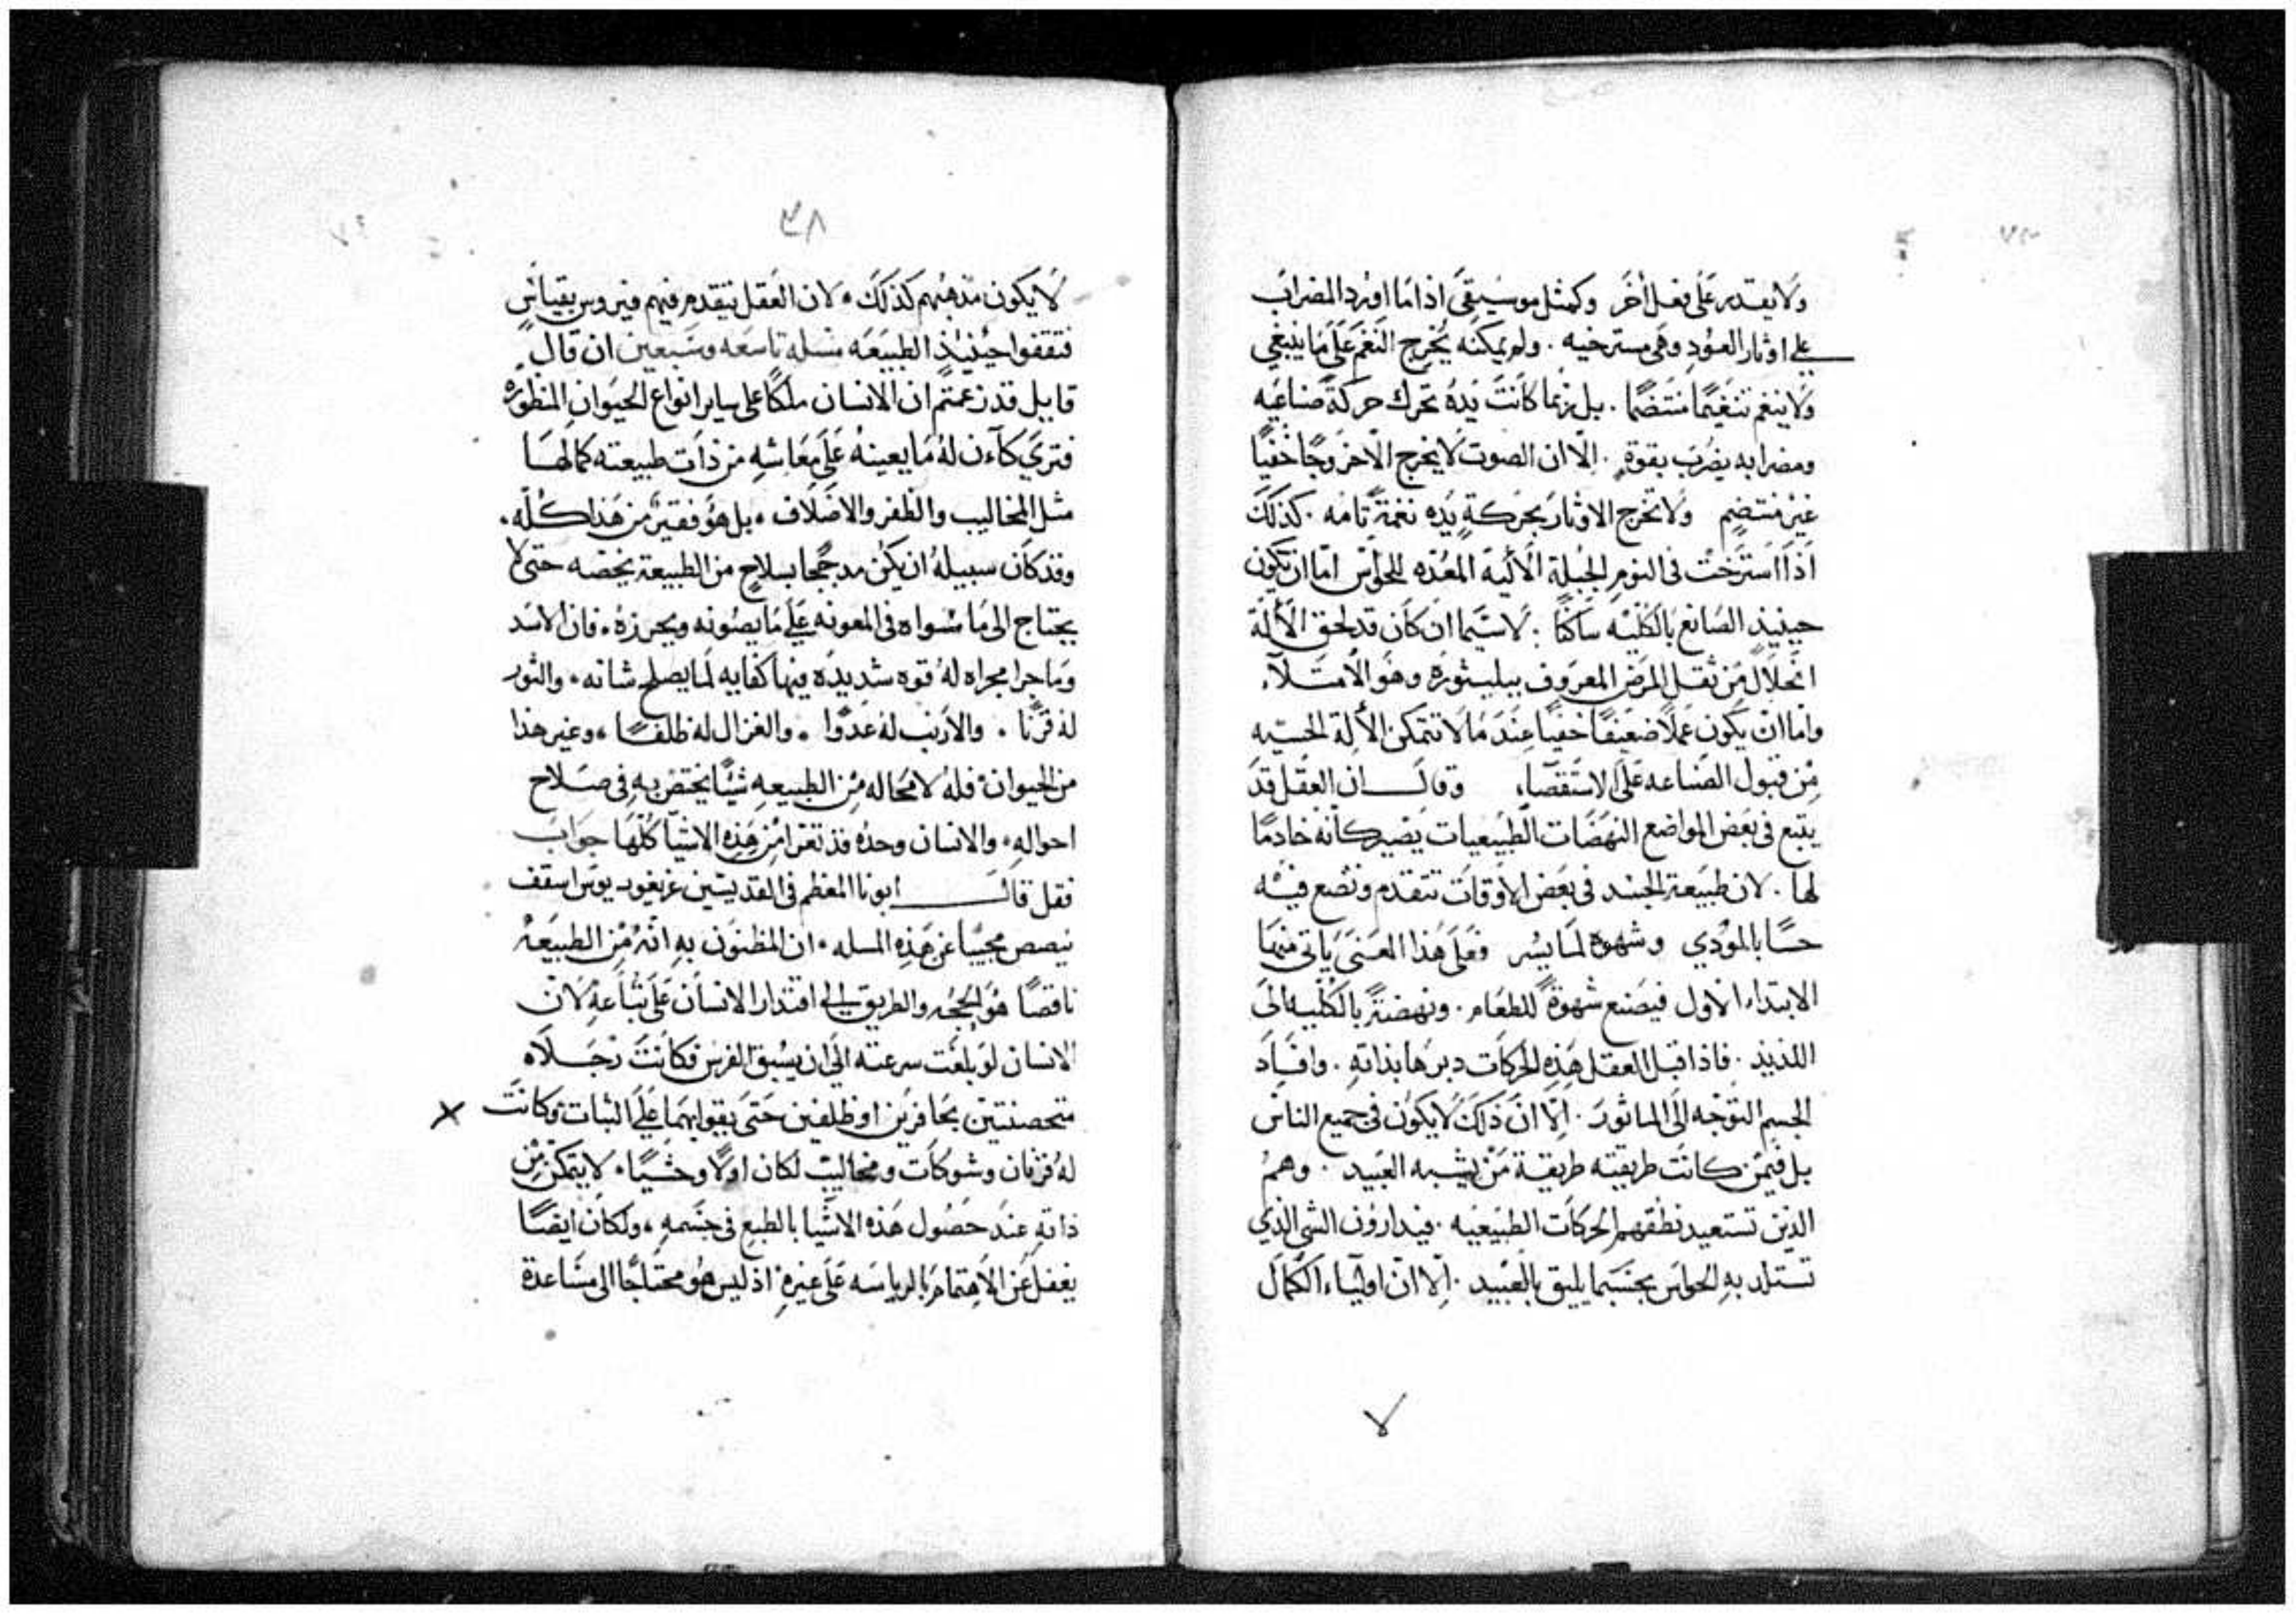 ولا يقدر على فعل أخر وكمثل موسيقي اذا ما اورد المضراب
على اوتار العود وهي مسترخيه . ولم يمكنه يخرج النغم على ما ينبغي
ولا ينغم تنغيمًا منتضمًا . بل ربما كانت يده تحرك حركةً صناعيه
ومضرابه يضرب بقوةٍ . الّا ان الصوت لا يخرج الّا خروجًا خفيًا
غير منتضمٍ ولا تخرج الاوتار بحركةِ يده نغمةً تامه . كذلك
اذا استرخت في النوم الجبلة الألّيه المعُدّه للحواس امّا ان يكون
حينيذ الصانع بالكليّه ساكنًا : لا سيّما ان كان قد لحق الألة
انحلال من ثقل المرض المعروف ببليثوره وهو الأمتلآء
واما ان يكون عملًا ضعيفًا خفيًا عند ما لا تتمكن الألة الحسّيه
من قبول الصناعه على الاستقصآء وقال ان العقل قد
يتبع في بعض المواضع النهضات الطبيعيات يصير كانه خادمًا
لها . لان طبيعة الجسد في بعض الأوقات تتقدم وتضع فيه
حسًا بالموذي وشهوة لما يسُر فعلى هذا المعنى ياتي منهما
الابتداء الأول فيصنع شهوةً للطعام . ونهضةً بالكليه الى
اللذيذ . فاذا قبل العقل هذه الحركات دبرها بذاته . وافاد
الجسم التوجه الى الماثور . الّا ان ذلك لا يكون في جميع الناس
بل فيمن كانت طريقته طريقة من يشبه العبيد . وهم
الذين تستعبد نطقهم الحركات الطبيعيه . فيدارون الشي الذي
تستلد به الحواس بحسبما يليق بالعبيد . الّا انّ اوليآء الكمال
لا
٣٨
لا يكون مذهبهم كذلك . لان العقل يتقدم فيهم فيروس بقياسٍ
فتقفوا حينيذ الطبيعه مسله تاسعه وسبعين ان قال
قايل قد زعمتم ان الانسان ملكًا على ساير انواع الحيوان المنظوره
فترى كآءن له ما يعينه على معاشه من ذات طبيعته كما لها
مثل المخاليب والظفر والاضلاف . بل هو فقير من هذا كلّه .
وقد كان سبيله ان يكن مدججًا بسلاح من الطبيعة يخصه حتى لا
يحتاج الى ما سواه في المعونه على ما يصونه ويحرزه . فان الاسد
وما جرا مجراه له قوه شديده فيها كفايه لما يصلح شانه . والثور
له قرنا . والارنب له عدوا . والغزال له ظلفًا . وغير هذا
من الحيوان فله لا محاله من الطبيعه شيًا يختص به في صلاح
احواله . والانسان وحده قد تعرا من هذه الاشيا كلها جواب
فقل قال ابونا المعظم في القديسين غريغوريوس اسقف
نيصص مجيبًا عن هذه المسله . ان المظنون به انه من الطبيعه
ناقصًا هو الحجه والطريق الى اقتدار الانسان على تباعه لان
الانسان لو بلغت سرعته الى ان يسبق الفرس فكانت رجلاه
متحصنتين بحافرين او ظلفين حتى يقوا بهما على الثبات وكانت
له قرنان وشوكات ومخاليب لكان اولًا وحشيًا . لا يتمكن من
ذاته عند حصول هذه الاشيا بالطبع في جسمه . ولكان ايضًا
يغفل عن الاهتمام بالرياسه على غيره . اذ ليس هو محتاجًا الى مساعدة